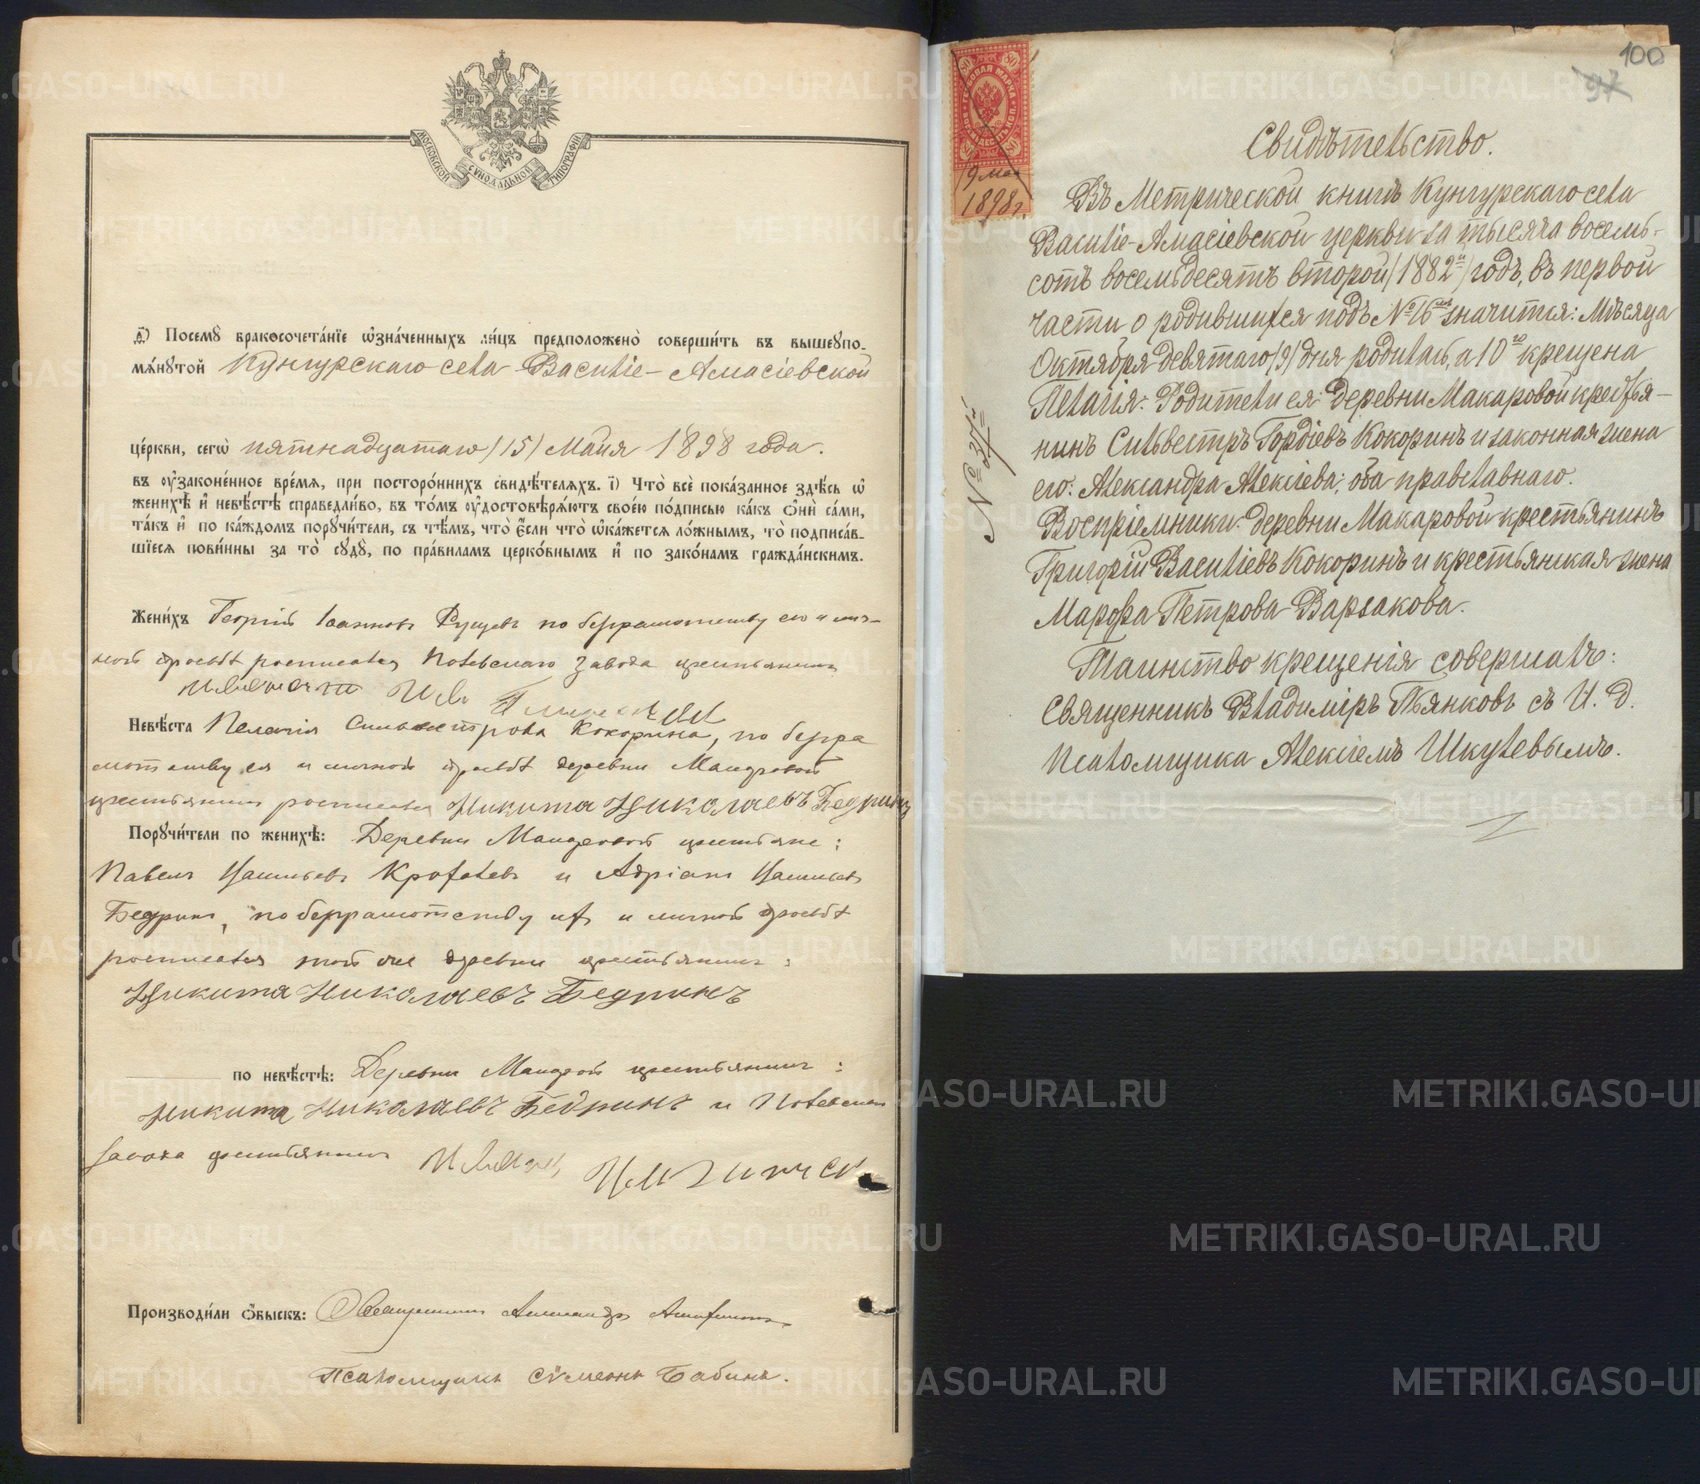 МОСКОВСКОЙ СУНОДАЛЬНОЙ ТИПОГРАФІИ
Посемꙋ бракосочета́нїе ѡ҆зна́ченныхъ ли́цъ предположено̀ соверши́ть въ вышеꙋпо-
мѧ́нꙋтой Кунгурскаго села Василіе-Амасіевской
це́ркви, сегѡ̀ пятнадцатаго /15/ Мая 1898 года.
въ ᲂу҆зако́ненное вре́мѧ, при посторо́ннихъ свидѣ́телѧхъ. і҃) Что̀ всѐ пока́занное здѣ́сь ѡ҆
женихѣ̀ и҆ невѣ́стѣ справедли́во, въ то́мъ ᲂу҆достовѣрѧ́ютъ свое́ю по́дписью ка́къ ѻ҆нѝ са́ми,
та́къ и҆ по ка́ждомъ порꙋчи́тели, съ тѣ́мъ, что̀ є҆́сли что̀ ѡ҆ка́жетсѧ ло́жнымъ, то̀ подписа́в-
шїесѧ пови́нны за то̀ сꙋдꙋ̀, по пра́виламъ церко́внымъ и҆ по зако́намъ гражда́нскимъ.
Жени́хъ Георгій Іоанновъ Рущевъ по безграмотству его и лич-
ной просьбѣ росписался Полевскаго завода крестьянинъ
Невѣ́ста Пелагія Сильвестрова Кокорина, по безгра
мотству ея и личной просьбѣ деревни
крестьянинъ росписался Никита Николаевъ Бедринъ
Порꙋчи́тели по женихѣ̀: Деревни крестьяне:
Павелъ и Адріанъ
Бедринъ, по безграмотству ихъ и личной просьбѣ
росписался той же деревни крестьянинъ:
Никита Николаевъ Бедринъ
по невѣ́стѣ: Деревни крестьянинъ:
Никита Николаевъ Бедринъ и Полевскаго
завода крестьянинъ
Производи́ли ѻ҆́быскъ: Священникъ Александръ
Псаломщикъ Сѵмеонъ Бабинъ.
100
97
19 мая
1898 г.
Свидѣтельство.
Въ Метрической книгѣ Кунгурскаго села
Василіе-Амасіевской церкви за тысяча восемь-
сотъ восемьдесятъ второй /1882й/ годъ, въ первой
части о родившихся подъ № 16 значится: Мѣсяца
Октября девятаго /9/ дня родилась, а 10го крещена
Пелагія: Родители ея: деревни Макаровой крестья-
нинъ Сильвестръ Гордіевъ Кокоринъ и законная жена
его: Александра Алексіева; оба православнаго.
Воспріемники: деревни Макаровой крестьянинъ
Григорій Василіевъ Кокоринъ и крестьянская жена
Марфа Петрова Варзакова.
Таинство крещенія совершалъ:
Священникъ Владиміръ Пьянковъ съ И. Д.
Псаломщика Алексіемъ Шкулевымъ.